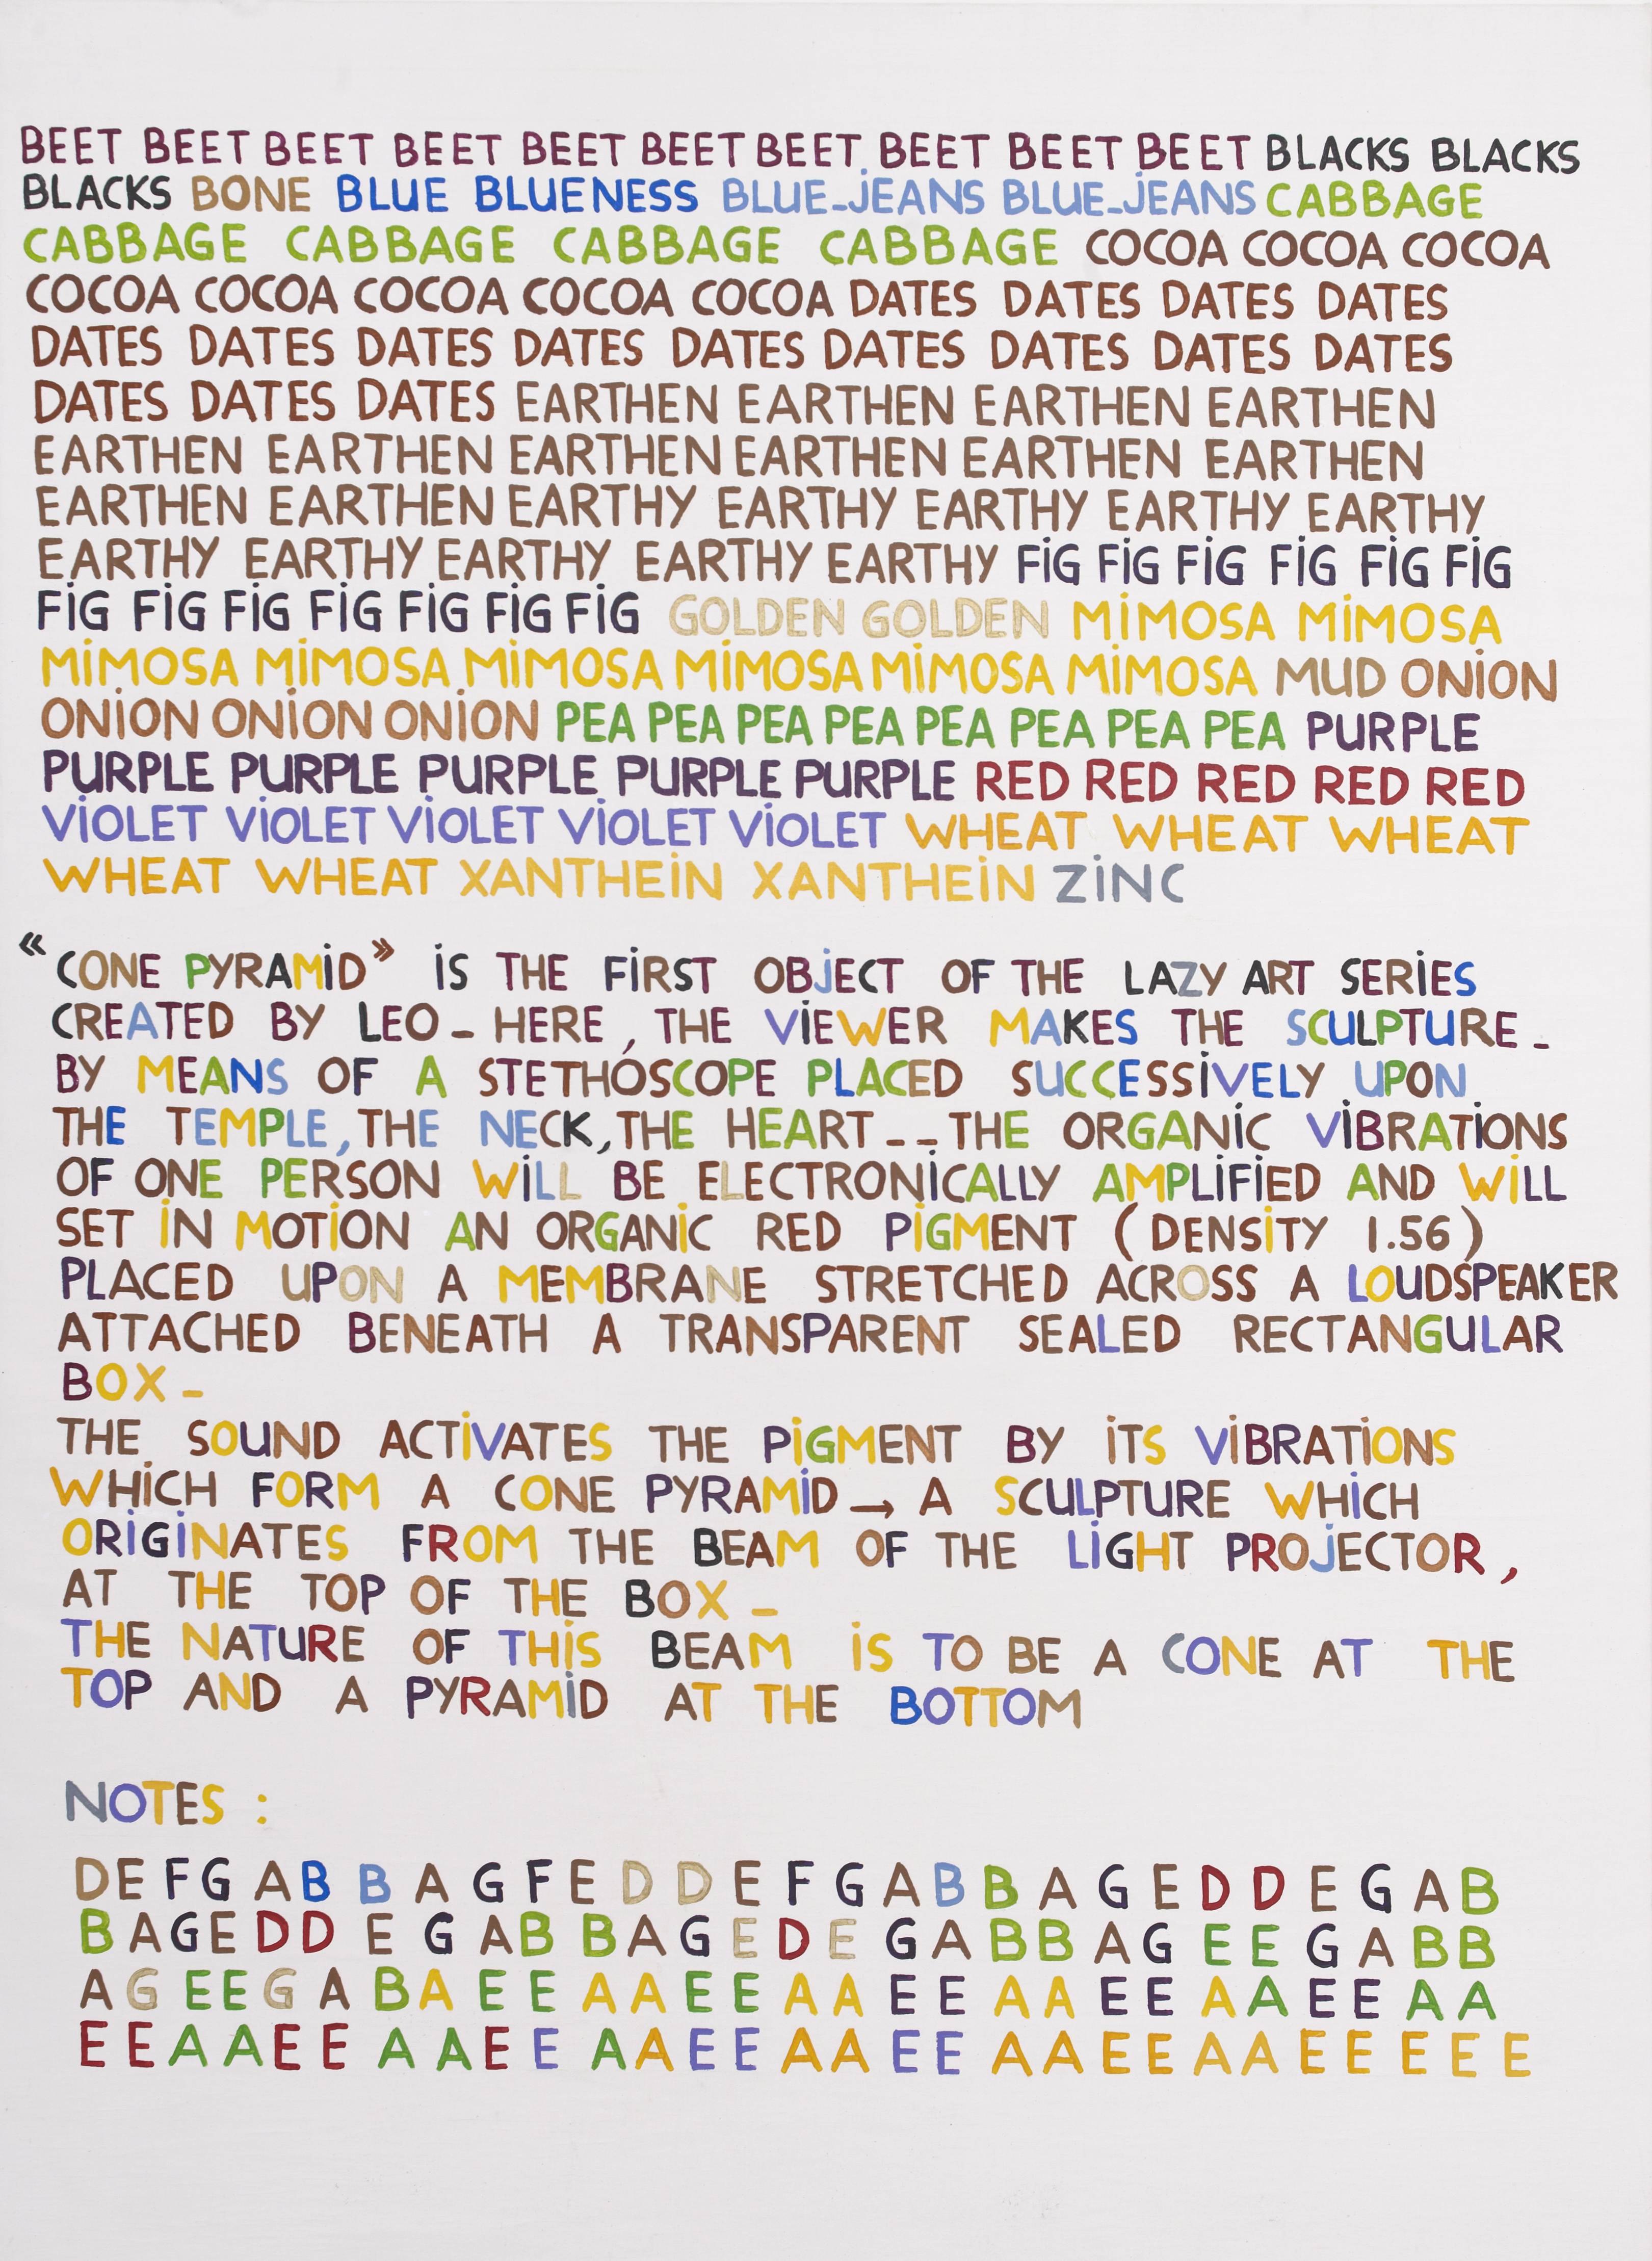 BEET BEET BEET BEET BEET BEET BEET BEET BEET BEET BLACKS BLACKS
BLACKS BONE BLUE BLUENESS BLUE_JEANS BLUE_JEANS CABBAGE
CABBAGE CABBAGE CABBAGE CABBAGE COCOA COCOA COCOA
COCOA COCOA COCOA COCOA COCOA DATES DATES DATES DATES
DATES DATES DATES DATES DATES DATES DATES DATES DATES
DATES DATES DATES EARTHEN EARTHEN EARTHEN EARTHEN
EARTHEN EARTHEN EARTHEN EARTHEN EARTHEN EARTHEN
EARTHEN EARTHEN EARTHY EARTHY EARTHY EARTHY EARTHY
EARTHY EARTHY EARTHY EARTHY EARTHY FiG FiG FiG FiG FiG FiG
FiG FiG FiG FiG FiG FiG FiG GOLDEN GOLDEN MiMOSA MiMOSA
MiMOSA MiMOSA MiMOSA MiMOSA MiMOSA MiMOSA MUD ONiON
ONiON ONiON ONiON PEA PEA PEA PEA PEA PEA PEA PEA PURPLE
PURPLE PURPLE PURPLE PURPLE PURPLE RED RED RED RED RED
ViOLET ViOLET ViOLET ViOLET ViOLET WHEAT WHEAT WHEAT
WHEAT WHEAT XANTHEiN XANTHEiN ZiNC
«CONE PYRAMiD» iS THE FiRST OBjECT OF THE LAZY ART SERiES
CREATED BY LEO _ HERE, THE ViEWER MAKES THE SCULPTURE _
BY MEANS OF A STETHOSCOPE PLACED SUCCESSiVELY UPON
THE TEMPLE, THE NECK, THE HEART _ _ THE ORGANiC ViBRATiONS
OF ONE PERSON WiLL BE ELECTRONiCALLY AMPLiFiED AND WiLL
SET iN MOTiON AN ORGANiC RED PiGMENT (DENSiTY 1.56)
PLACED UPON A MEMBRANE STRETCHED ACROSS A LOUDSPEAKER
ATTACHED BENEATH A TRANSPARENT SEALED RECTANGULAR
BOX _
THE SOUND ACTiVATES THE PiGMENT BY iTS ViBRATiONS
WHiCH FORM A CONE PYRAMiD → A SCULPTURE WHiCH
ORiGiNATES FROM THE BEAM OF THE LiGHT PROjECTOR,
AT THE TOP OF THE BOX _
THE NATURE OF THiS BEAM iS TO BE A CONE AT THE
TOP AND A PYRAMiD AT THE BOTTOM
NOTES :
D E F G A B B A G F E D D E F G A B B A G E D D E G A B
B A G E D D E G A B B A G E D E G A B B A G E E G A B B
A G E E G A B A E E A A E E A A E E A A E E A A E E A A
E E A A E E A A E E A A E E A A E E A A E E A A E E E E E